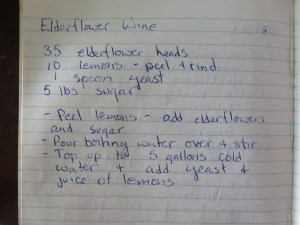 Elderflower Wine
35 elderflower heads
10 lemons - peel + rind
1 spoon yeast
5 lbs sugar
- Peel lemons - add elderflowers
and sugar
- Pour boiling water over + stir
- Top up to 5 gallons cold
water + add yeast +
juice of lemons